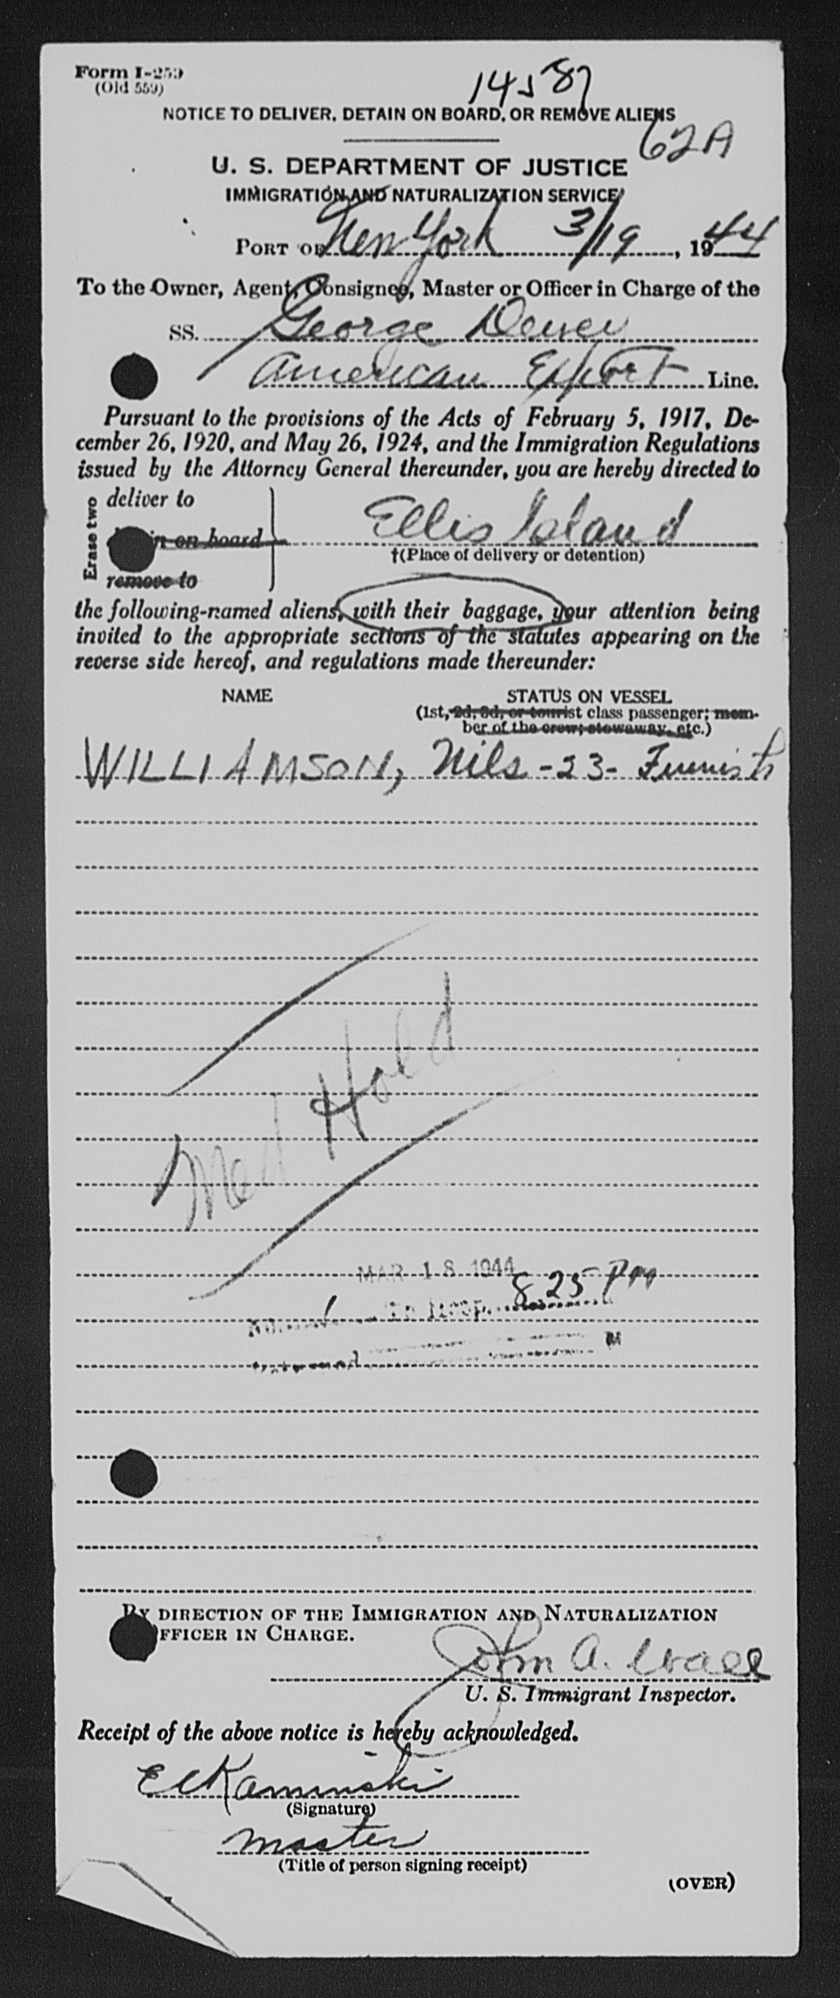 Form I-259
(Old 559)
14587
NOTICE TO DELIVER, DETAIN ON BOARD, OR REMOVE ALIENS
62A
U. S. DEPARTMENT OF JUSTICE
IMMIGRATION AND NATURALIZATION SERVICE
PORT OF New York 3/19, 1944
To the Owner, Agent, Consignee, Master or Officer in Charge of the
SS. George Dewey
American Export Line.
Pursuant to the provisions of the Acts of February 5, 1917, De-
cember 26, 1920, and May 26, 1924, and the Immigration Regulations
issued by the Attorney General thereunder, you are hereby directed to
Erase two
deliver to
on board
remove to
Ellis Island
†(Place of delivery or detention)
the following-named aliens, with their baggage, your attention being
invited to the appropriate sections of the statutes appearing on the
reverse side hereof, and regulations made thereunder:
NAME STATUS ON VESSEL
(1st, 2d, 3d, or tourist class passenger; mem-
ber of the crew; stowaway, etc.)
WILLIAMSON, Nils -23- Finnish
Med Hold
MAR 18 1944
8 25 Pm
To Hosp.
M
BY DIRECTION OF THE IMMIGRATION AND NATURALIZATION
OFFICER IN CHARGE.
John A. Wall
U. S. Immigrant Inspector.
Receipt of the above notice is hereby acknowledged.
E C Kaminski
(Signature)
Master
(Title of person signing receipt)
(OVER)